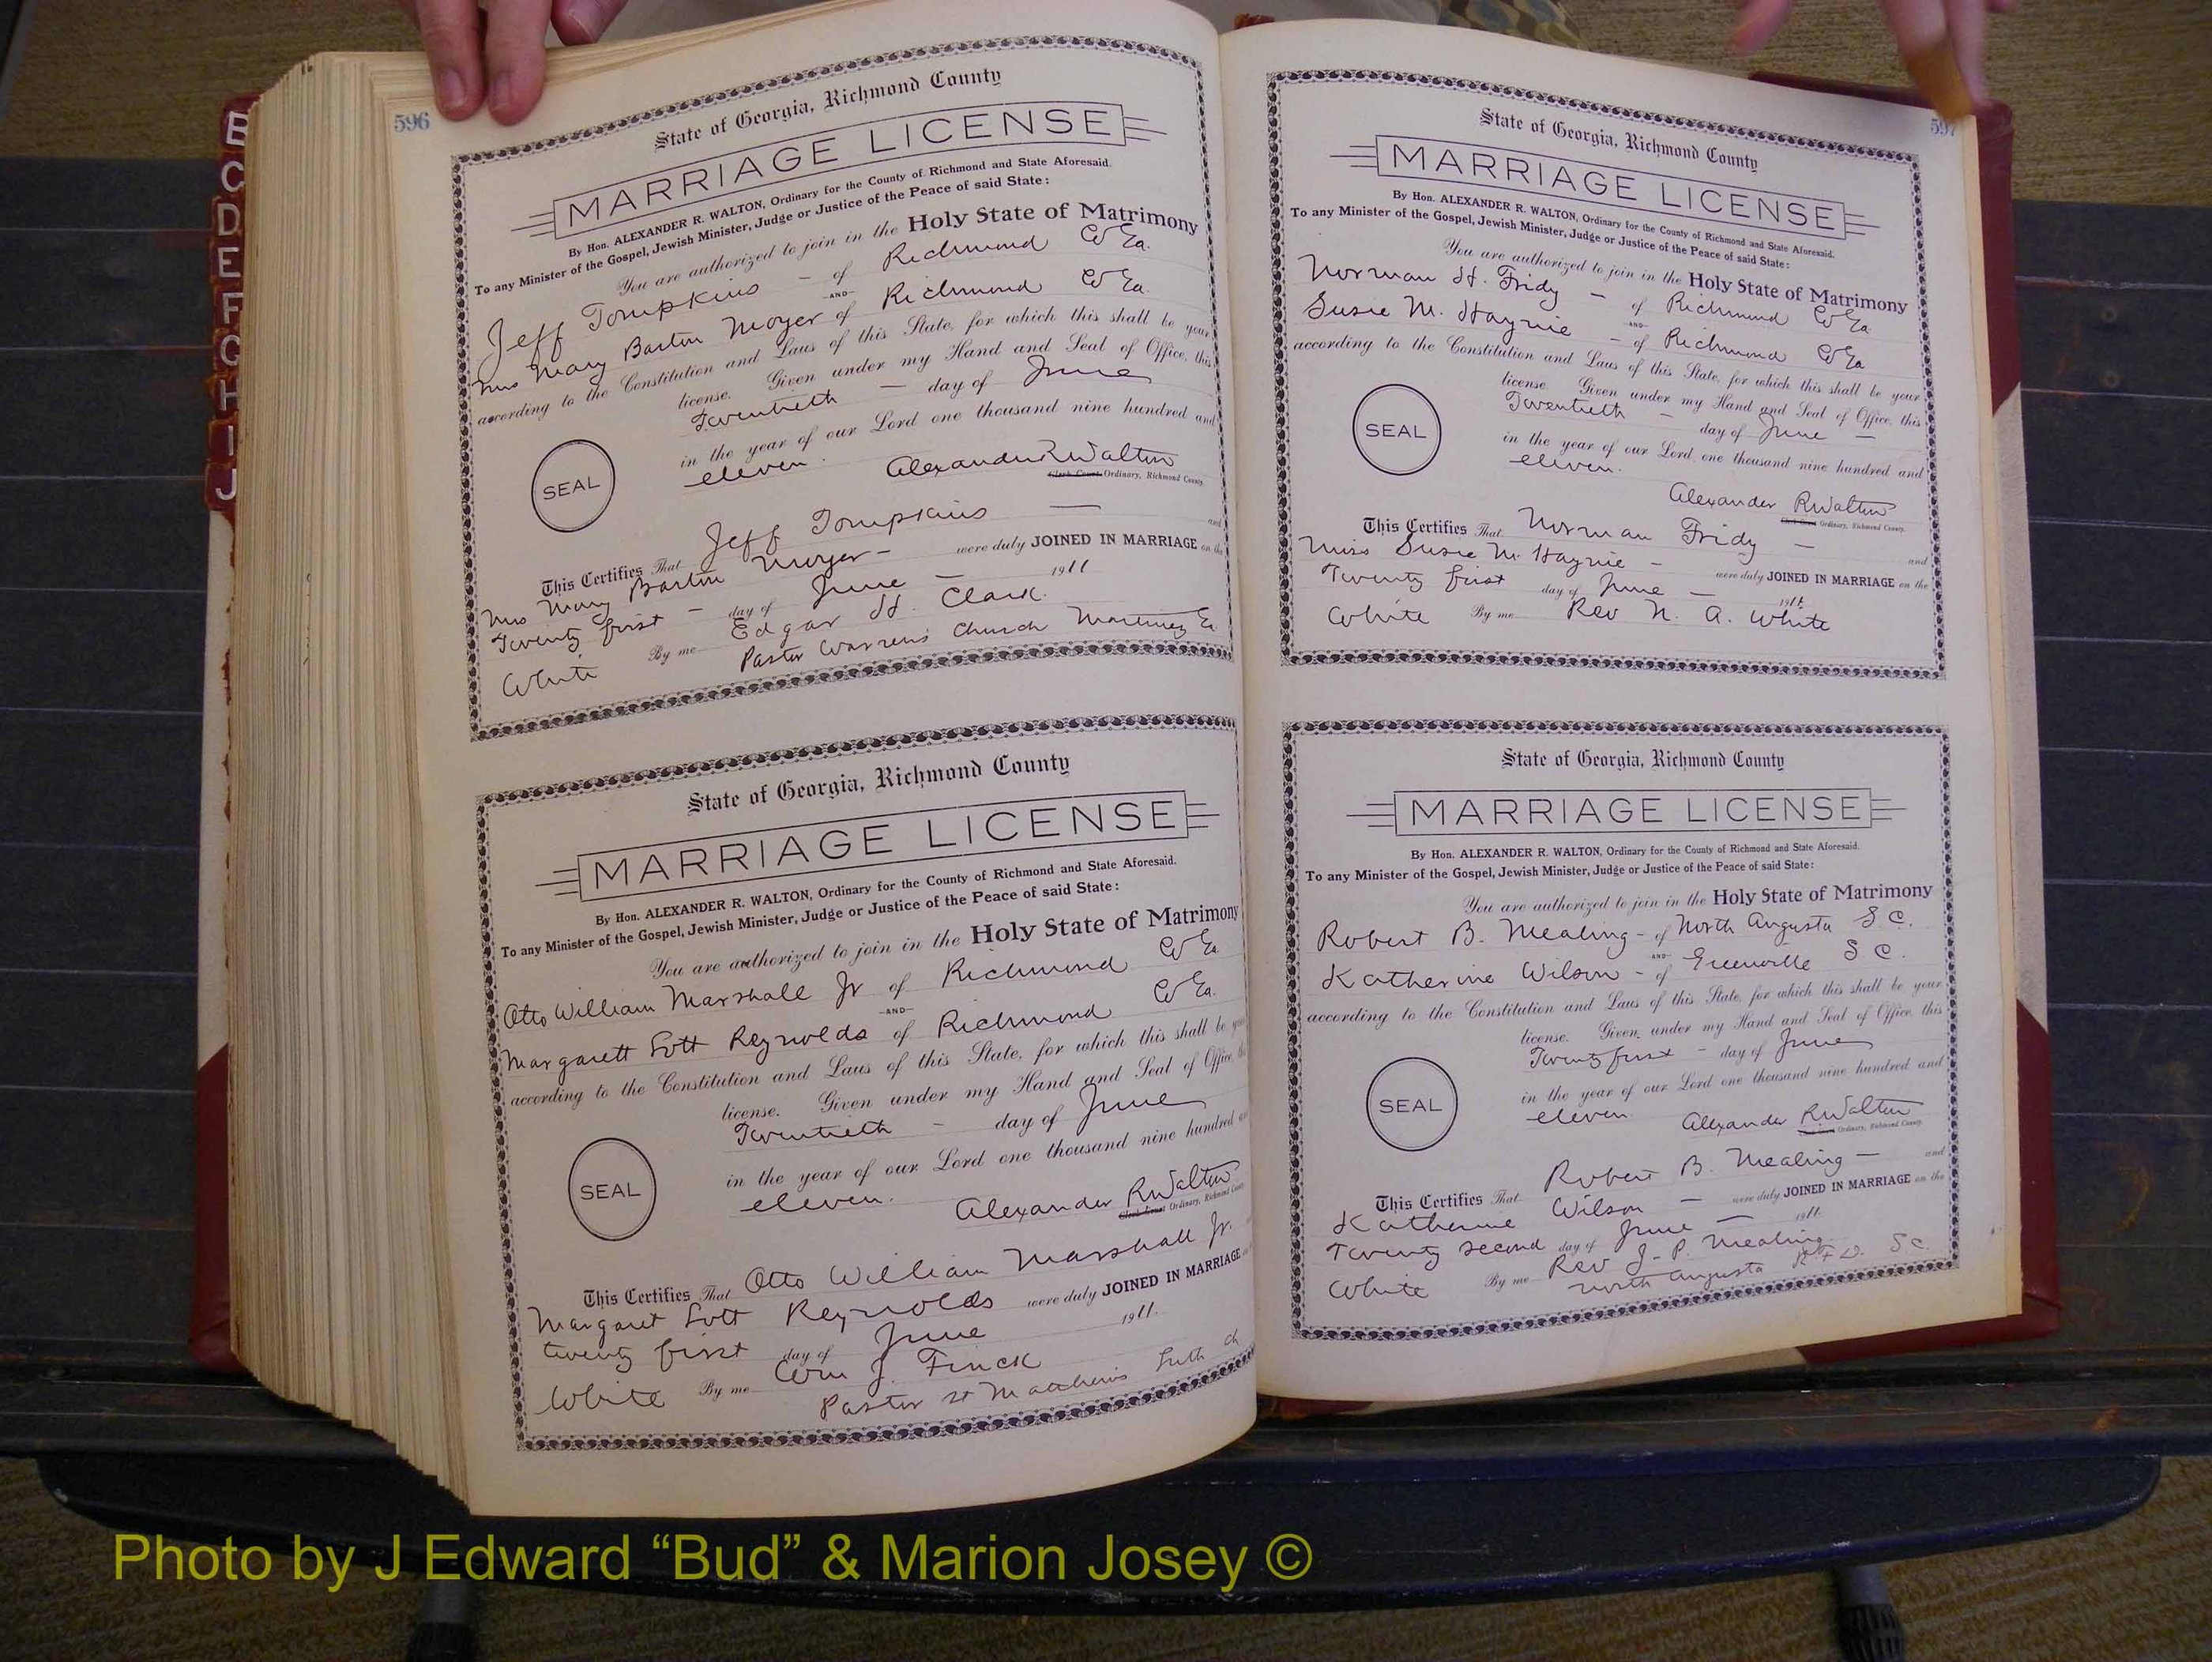 B
C
D
E
F
G
H
I
J
596
State of Georgia, Richmond County
MARRIAGE LICENSE
By Hon. ALEXANDER R. WALTON, Ordinary for the County of Richmond and State Aforesaid.
To any Minister of the Gospel, Jewish Minister, Judge or Justice of the Peace of said State:
You are authorized to join in the Holy State of Matrimony
Jeff Tompkins - of Richmond Co Ga.
-AND-
Mrs Mary Barton Moyer of Richmond Co Ga.
according to the Constitution and Laws of this State, for which this shall be your
license. Given under my Hand and Seal of Office, this
Twentieth - day of June
in the year of our Lord one thousand nine hundred and
eleven.
SEAL
Alexander R Walton
Clerk Court Ordinary, Richmond County.
This Certifies That Jeff Tompkins - and
Mrs Mary Barton Moyer - were duly JOINED IN MARRIAGE on the
Twenty first - day of June - 1911
By me Edgar H. Clark.
White Pastor Warrens Church Martinez Ga
State of Georgia, Richmond County
MARRIAGE LICENSE
By Hon. ALEXANDER R. WALTON, Ordinary for the County of Richmond and State Aforesaid.
To any Minister of the Gospel, Jewish Minister, Judge or Justice of the Peace of said State:
You are authorized to join in the Holy State of Matrimony
Otto William Marshall Jr of Richmond Co Ga.
-AND-
Margarett Lott Reynolds of Richmond Co Ga.
according to the Constitution and Laws of this State, for which this shall be your
license. Given under my Hand and Seal of Office, th
Twentieth - day of June
in the year of our Lord one thousand nine hundred an
eleven.
SEAL
Alexander R Walton
Clerk Court Ordinary, Richmond County
This Certifies That Otto William Marshall Jr.
Margaret Lott Reynolds were duly JOINED IN MARRIAGE
twenty first day of June 1911.
White By me Wm J. Finck
Pastor St Matthews Luth ch
597
State of Georgia, Richmond County
MARRIAGE LICENSE
By Hon. ALEXANDER R. WALTON, Ordinary for the County of Richmond and State Aforesaid.
To any Minister of the Gospel, Jewish Minister, Judge or Justice of the Peace of said State:
You are authorized to join in the Holy State of Matrimony
Norman H. Fridy - of Richmond Co Ga
-AND-
Susie M. Haynie - of Richmond Co Ga
according to the Constitution and Laws of this State, for which this shall be your
license. Given under my Hand and Seal of Office, this
Twentieth - day of June -
in the year of our Lord one thousand nine hundred and
eleven.
SEAL
Alexander R Walton
Clerk Court Ordinary, Richmond County.
This Certifies That Norman Fridy - and
Miss Susie M. Haynie - were duly JOINED IN MARRIAGE on the
Twenty first day of June - 1911.
White By me Rev N. A. White
State of Georgia, Richmond County
MARRIAGE LICENSE
By Hon. ALEXANDER R. WALTON, Ordinary for the County of Richmond and State Aforesaid.
To any Minister of the Gospel, Jewish Minister, Judge or Justice of the Peace of said State:
You are authorized to join in the Holy State of Matrimony
Robert B. Mealing - of North Augusta S. C.
-AND-
Katherine Wilson - of Greenville S C.
according to the Constitution and Laws of this State, for which this shall be your
license. Given under my Hand and Seal of Office, this
Twenty first - day of June
in the year of our Lord one thousand nine hundred and
eleven.
SEAL
Alexander R Walton
Clerk Court Ordinary, Richmond County.
This Certifies That Robert B. Mealing - and
Katherine Wilson - were duly JOINED IN MARRIAGE on the
Twenty second day of June - 1911.
White By me Rev J. P. Mealing.
North Augusta R.F.D. S C.
Photo by J Edward “Bud” & Marion Josey ©